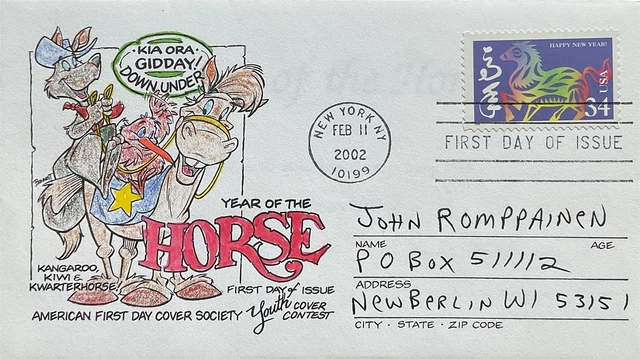 KIA ORA
GIDDAY!
DOWN UNDER
HAPPY NEW YEAR!
USA
34
NEW YORK NY
FEB 11
2002
10199
FIRST DAY OF ISSUE
YEAR OF THE
HORSE
KANGAROO,
KIWI &
KWARTERHORSE
FIRST DAY of ISSUE
AMERICAN FIRST DAY COVER SOCIETY Youth COVER CONTEST
JOHN ROMPPAINEN
NAME AGE
PO BOX 511112
ADDRESS
NEW BERLIN WI 53151
CITY · STATE · ZIP CODE